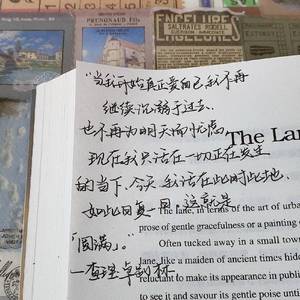 PHENOXAÏD FILS
FACELURES
SALTRATES RODELL
"当我开始真正爱自己,我不再
继续沉溺于过去,
也不再为明天而忧虑
The Lan
现在我只活在一切正在发生
的当下,今天我活在此时此地,
如此日复一日,这就是
The lane, in terms of the art of urba
prose of gentle gracefulness or a painting o
「圆满」。"
Often tucked away in a small town
—查理·卓别林
lane, like a maiden of ancient times hidd
reluctant to make its appearance in publi
to see it and savour its gentle poise withou